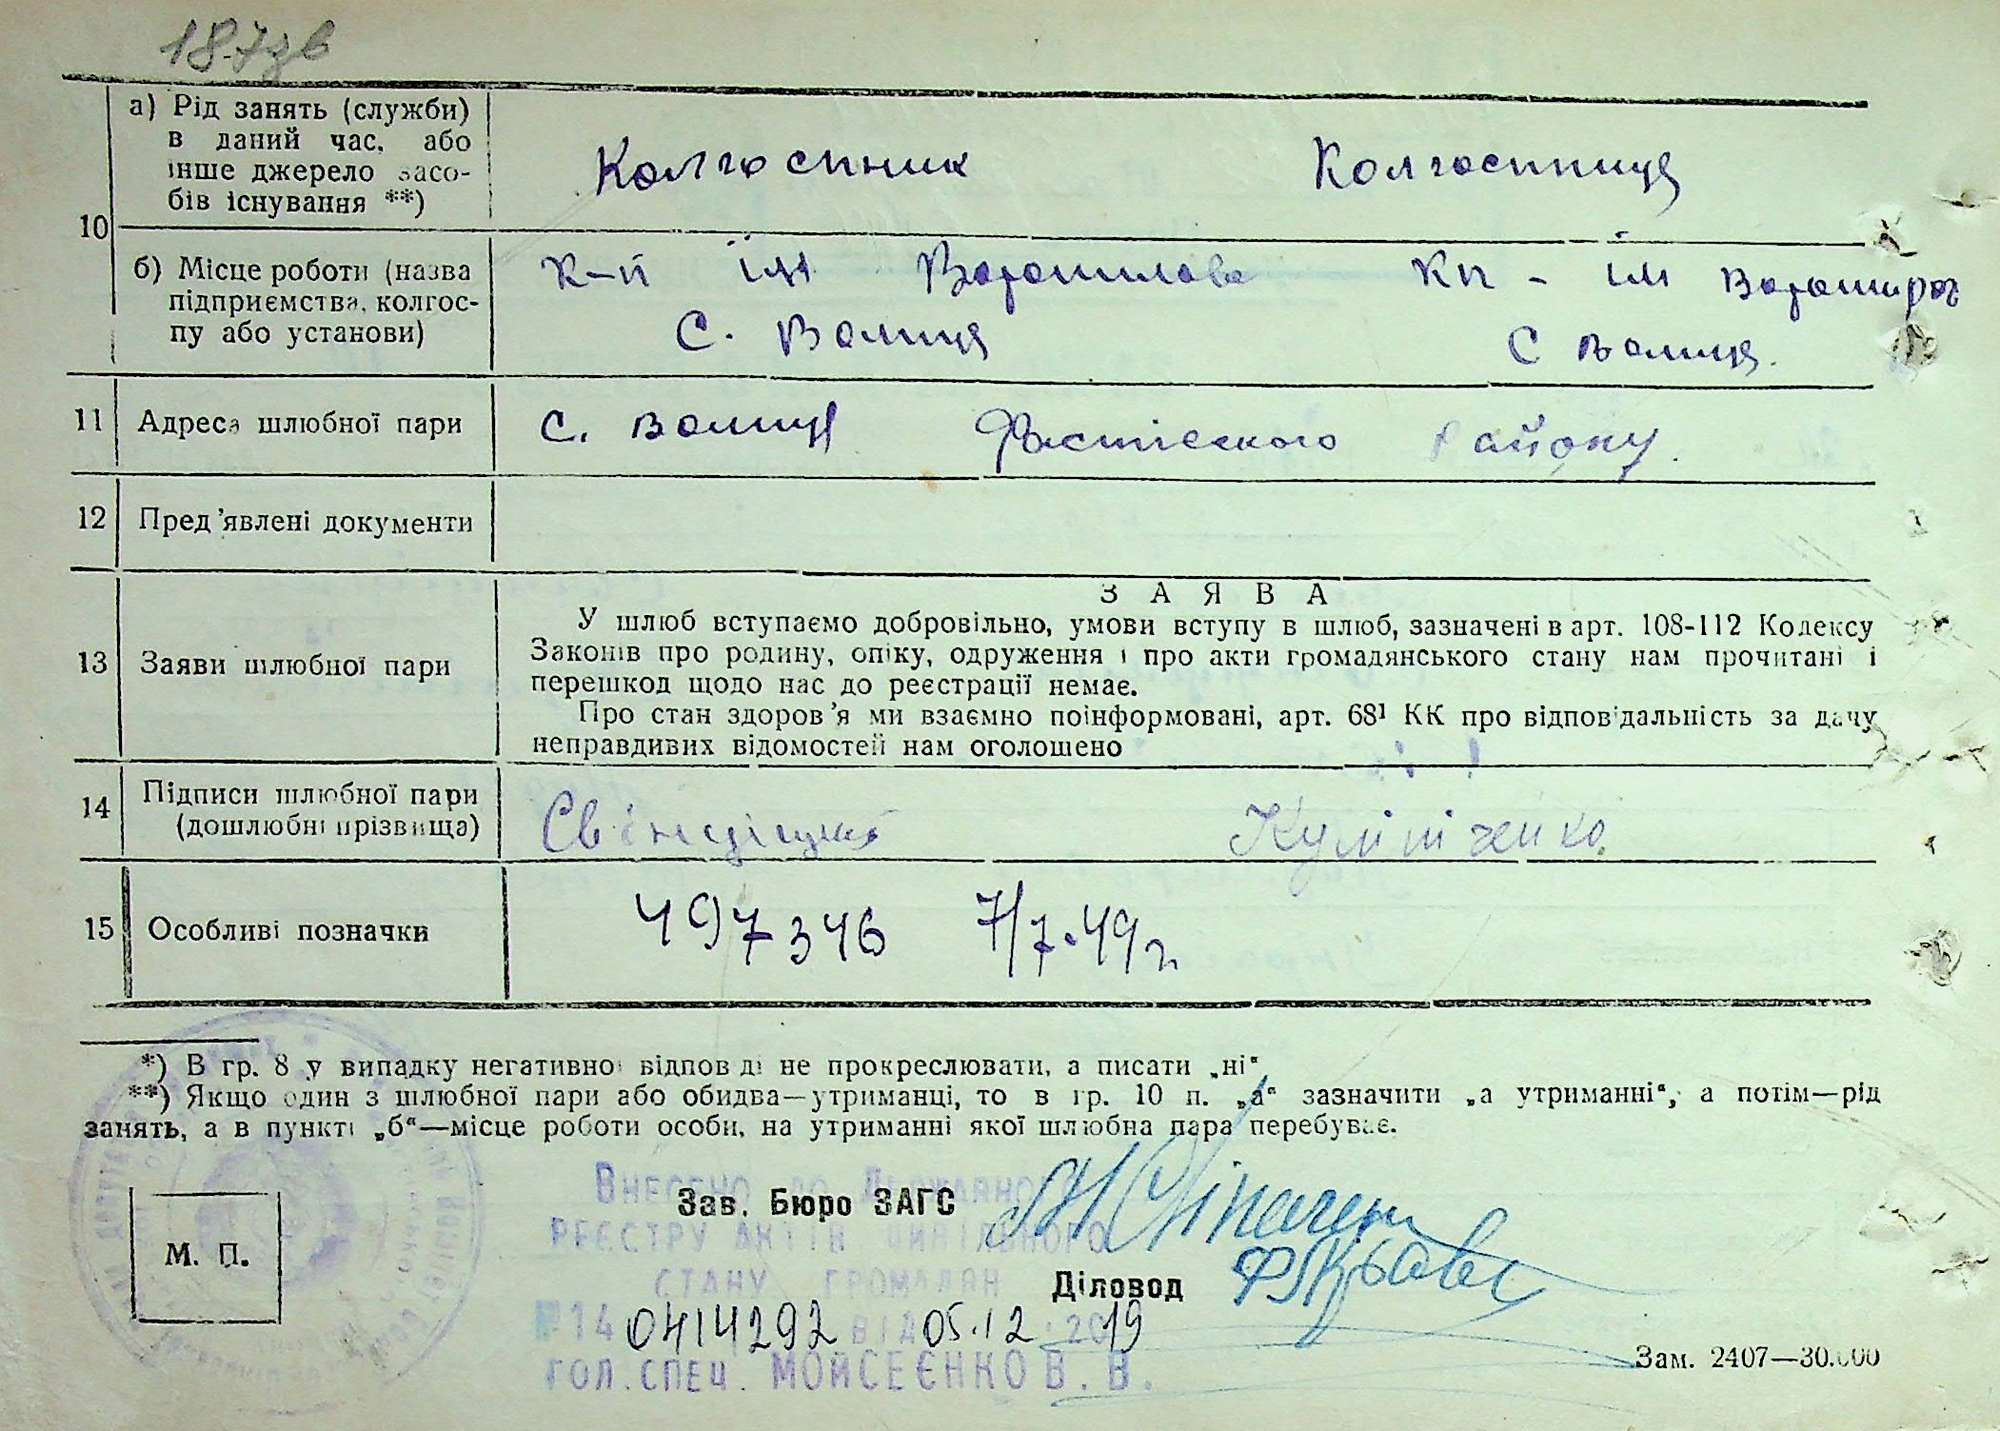 187зв
10
а) Рід занять (служби)
в даний час, або
інше джерело засо-
бів існування **)
Колгоспник
Колгоспниця
б) Місце роботи (назва
підприємства, колгос-
пу або установи)
К-п ім Ворошилова
С. Волиця
Кп - ім Ворошилов
С Волиця.
11 Адреса шлюбної пари
С. Волиця Фастівського району.
12 Пред'явлені документи
13 Заяви шлюбної пари
ЗАЯВА
У шлюб вступаємо добровільно, умови вступу в шлюб, зазначені в арт. 108-112 Кодексу
Законів про родину, опіку, одруження і про акти громадянського стану нам прочитані і
перешкод щодо нас до реєстрації немає.
Про стан здоров'я ми взаємно поінформовані, арт. 68¹ КК про відповідальність за дачу
неправдивих відомостей нам оголошено
14 Підписи шлюбної пари
(дошлюбні прізвища)
15 Особливі позначки
497346 7/7.49 г.
*) В гр. 8 у випадку негативної відповіді не прокреслювати, а писати „ні“
**) Якщо один з шлюбної пари або обидва—утриманці, то в гр. 10 п. „а“ зазначити „а утриманні“, а потім—рід
занять, а в пункті „б“—місце роботи особи, на утриманні якої шлюбна пара перебуває.
М. П.
Зав. Бюро ЗАГС
Діловод
Внесено до Державного
реєстру актів цивільного
стану громадян
№14 0414292 від 05.12.2019
гол. спец. Мойсеєнко В. В.
Зам. 2407—30.000